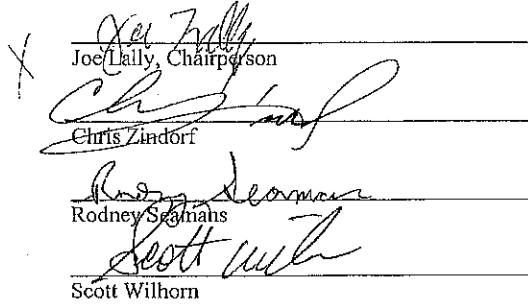 X Joe Lally
Joe Lally, Chairperson
Chris Zindorf
Chris Zindorf
Rodney Seamans
Rodney Seamans
Scott Wilhorn
Scott Wilhorn